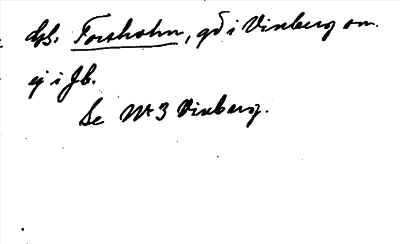 dgs. Forsholm, gd i Vinberg sn.
ej i Jb.
Se Nr 3 Vinberg.